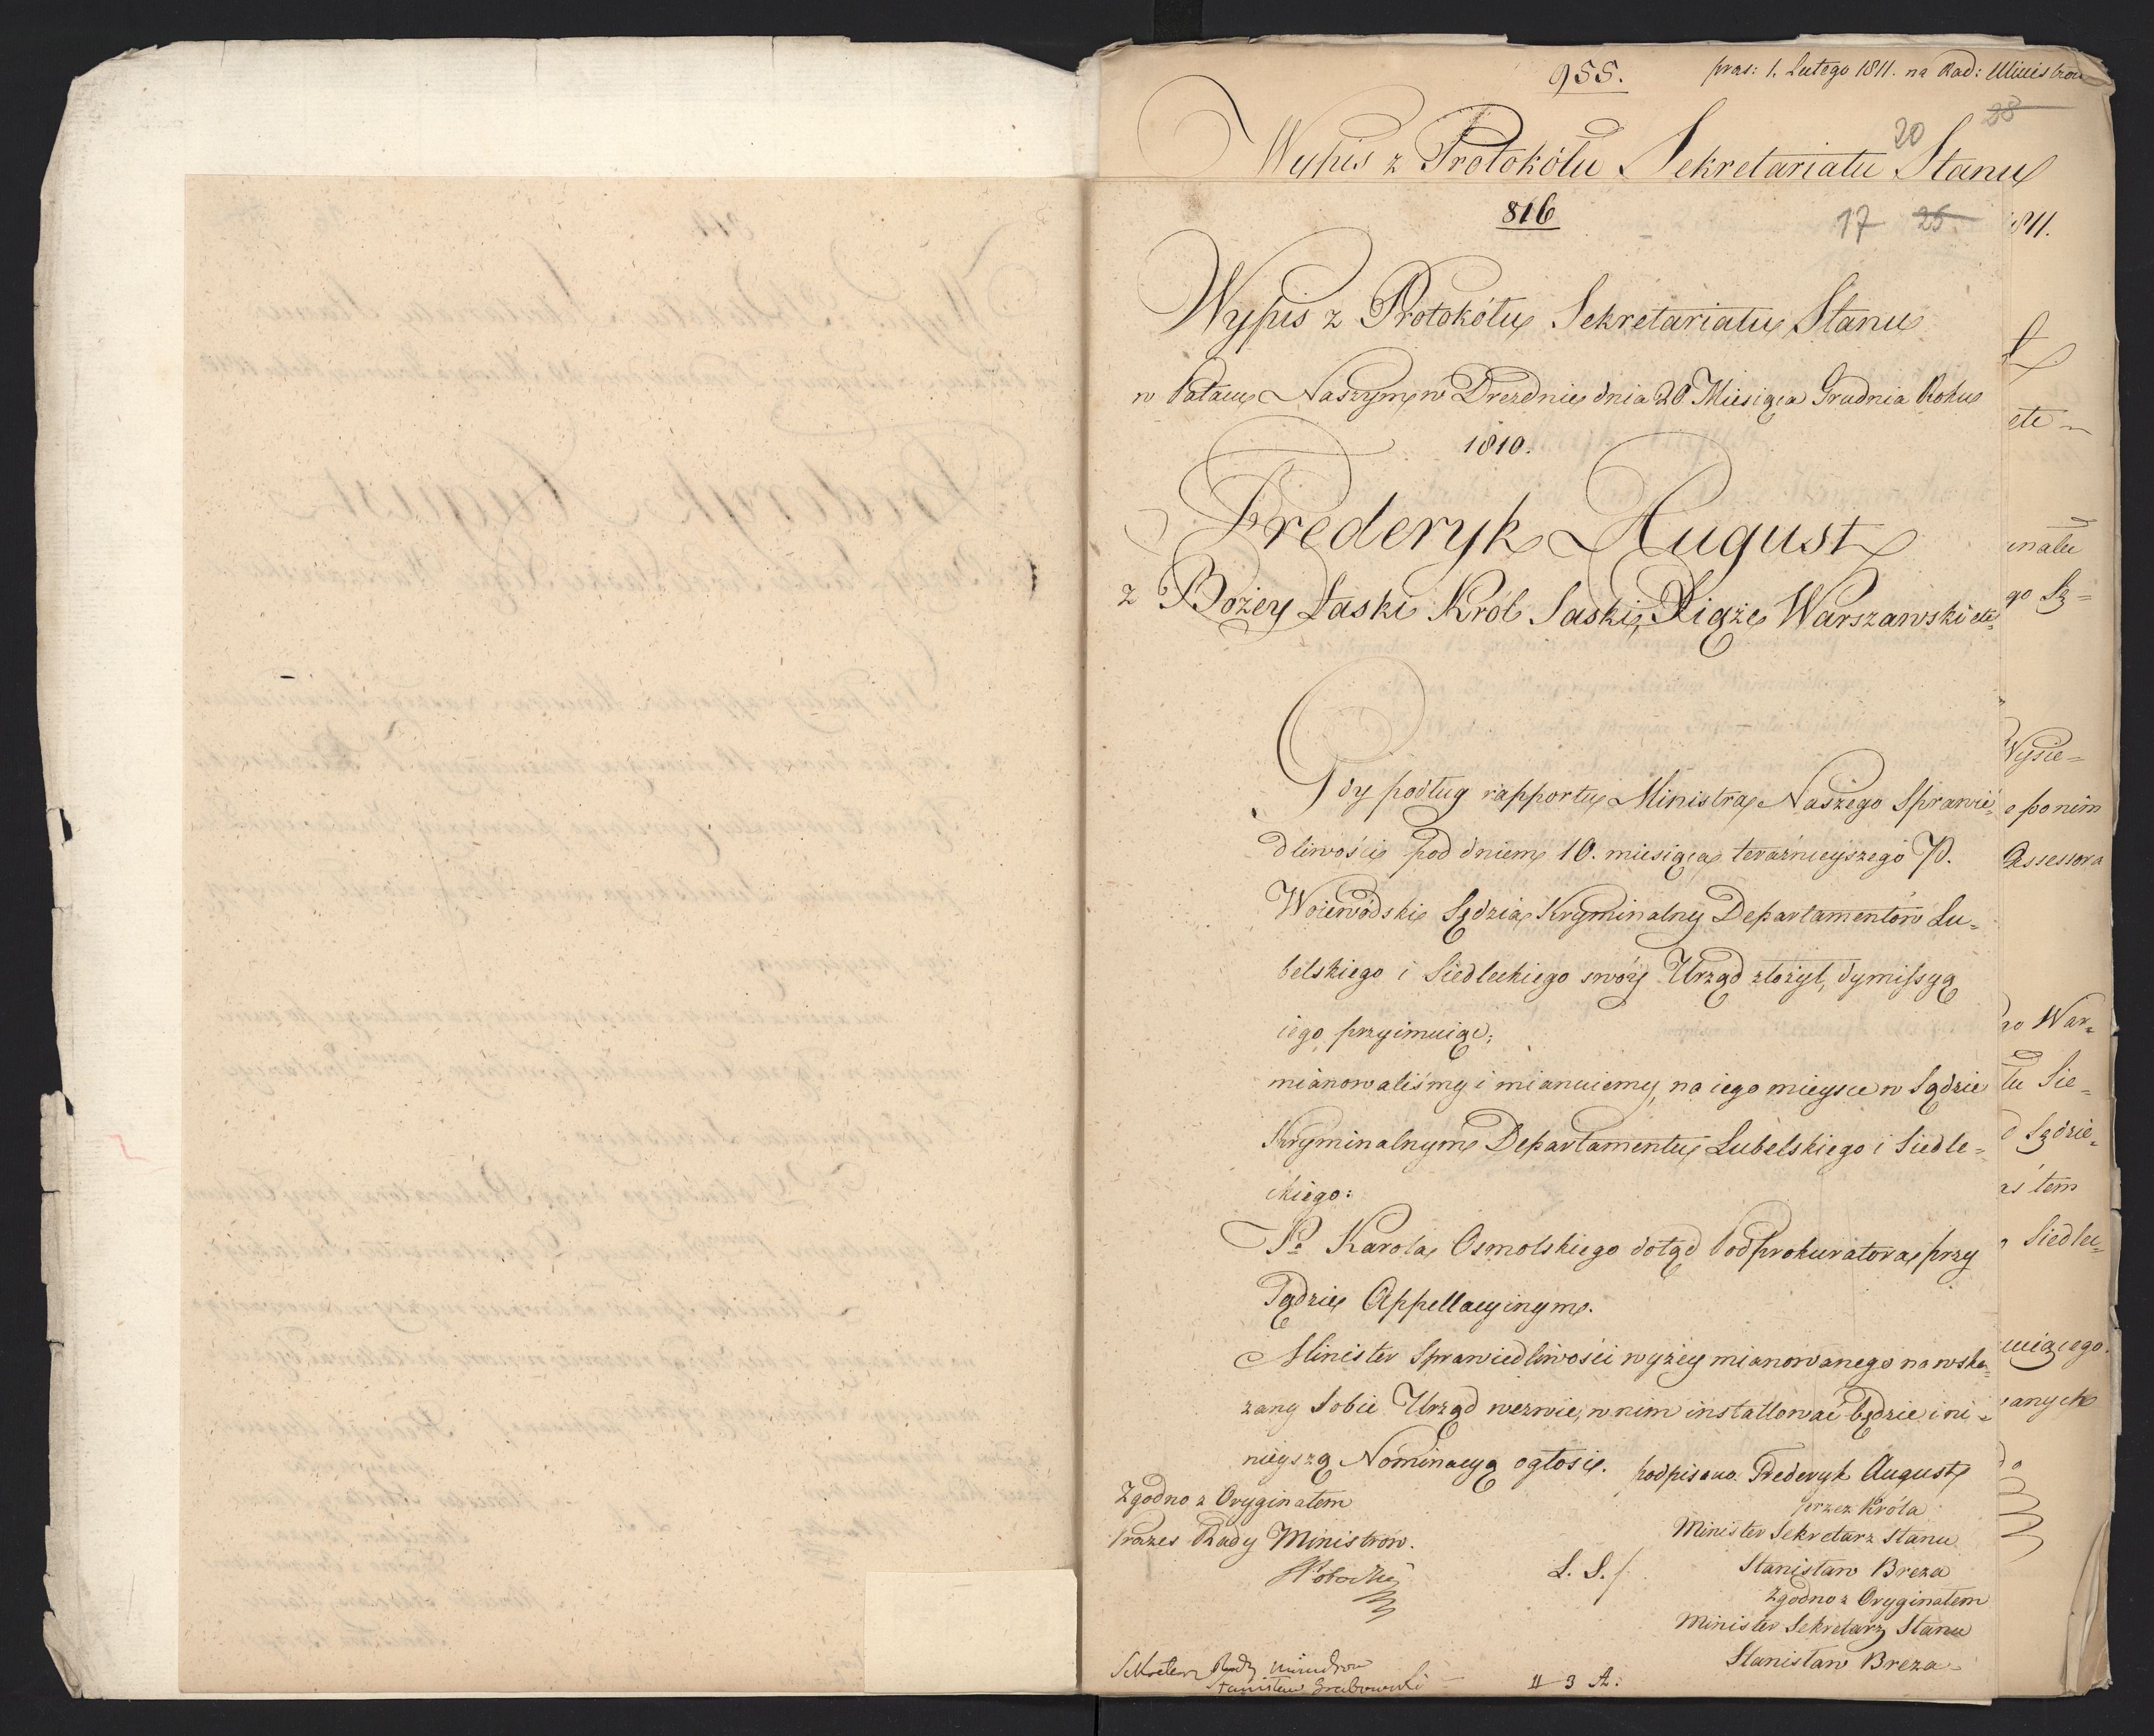 955. pras: 1. Lutego 1811. na Rad: Ministrow
28
20
Wypis z Protokółu Sekretariatu Stanu
816
17 25
1811.
Wypis z Protokółu Sekretariatu Stanu
w Pałacu Naszym w Dreznie dnia 20 Miesiąca Grudnia Roku
1810.
Frederyk August
z Bożey Łaski Król Saski, Xiąże Warszawski etc
Gdy podług rapportu Ministra Naszego Sprawie=
dliwości pod dniem 10. miesiąca teraźnieyszego P.
Woiewódski Sędzia Kryminalny Departamentów Lu=
belskiego i Siedleckiego swóy Urząd złożył, dymissyą
iego przyimuiąc;
mianowaliśmy i mianuiemy, na iego mieysce w Sądzie
Kryminalnym Departamentu Lubelskiego i Siedle=
ckiego:
Pa Karola Osmolskiego dotąd Podprokuratora przy
Sądzie Appellacyinym.
Minister Sprawiedliwości wyżey mianowanego na wska=
zany Sobie Urząd wezwie, w nim installować będzie i ni=
nieyszą Nominacyą ogłosi.
podpisano Frederyk August
przez Króla
Minister Sekretarz Stanu
Stanisław Breza
Zgodno z Oryginałem
Minister Sekretarz Stanu
Stanisław Breza
L. S.
Zgodno z Oryginałem
Prezes Rady Ministrow.
Sekretarz Rady Ministrow
Stanisław Grabowski
3 A:
etc
inału
go Są=
Wysie=
o ponim
Assessora
go War=
tu Sie=
Sędzie=
aś tem
Siedlec=
uiącego.
anych